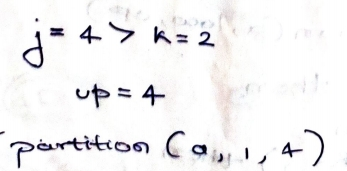 j = 4 > k = 2
up = 4
partition (a, 1, 4)